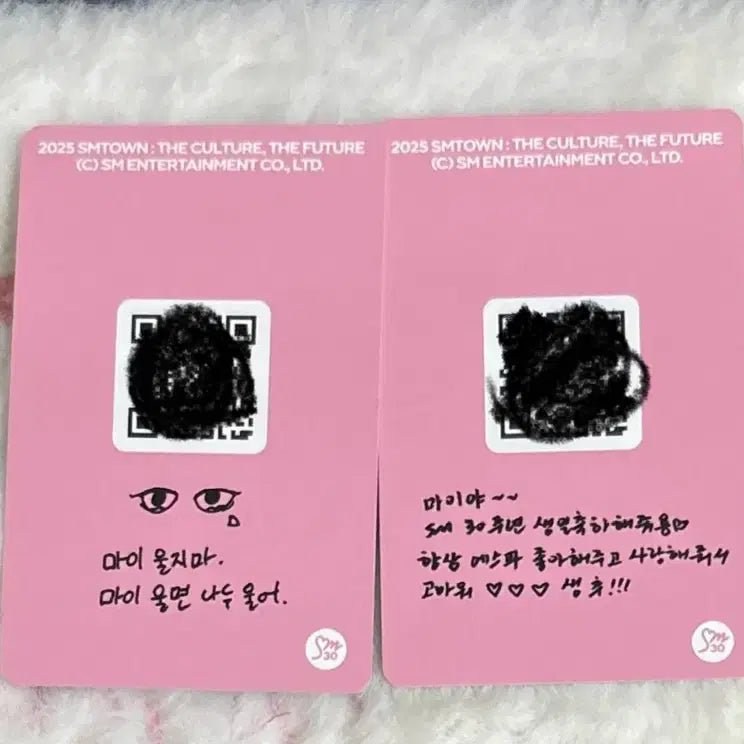 2025 SMTOWN : THE CULTURE, THE FUTURE
(C) SM ENTERTAINMENT CO., LTD.
마이 울지마.
마이 울면 나두 울어.
Sm 30
2025 SMTOWN : THE CULTURE, THE FUTURE
(C) SM ENTERTAINMENT CO., LTD.
마이야~~
SM 30주년 생일축하해죠용♡
항상 에스파 좋아해주고 사랑해줘서
고마워 ♡♡♡ 생축!!!
Sm 30